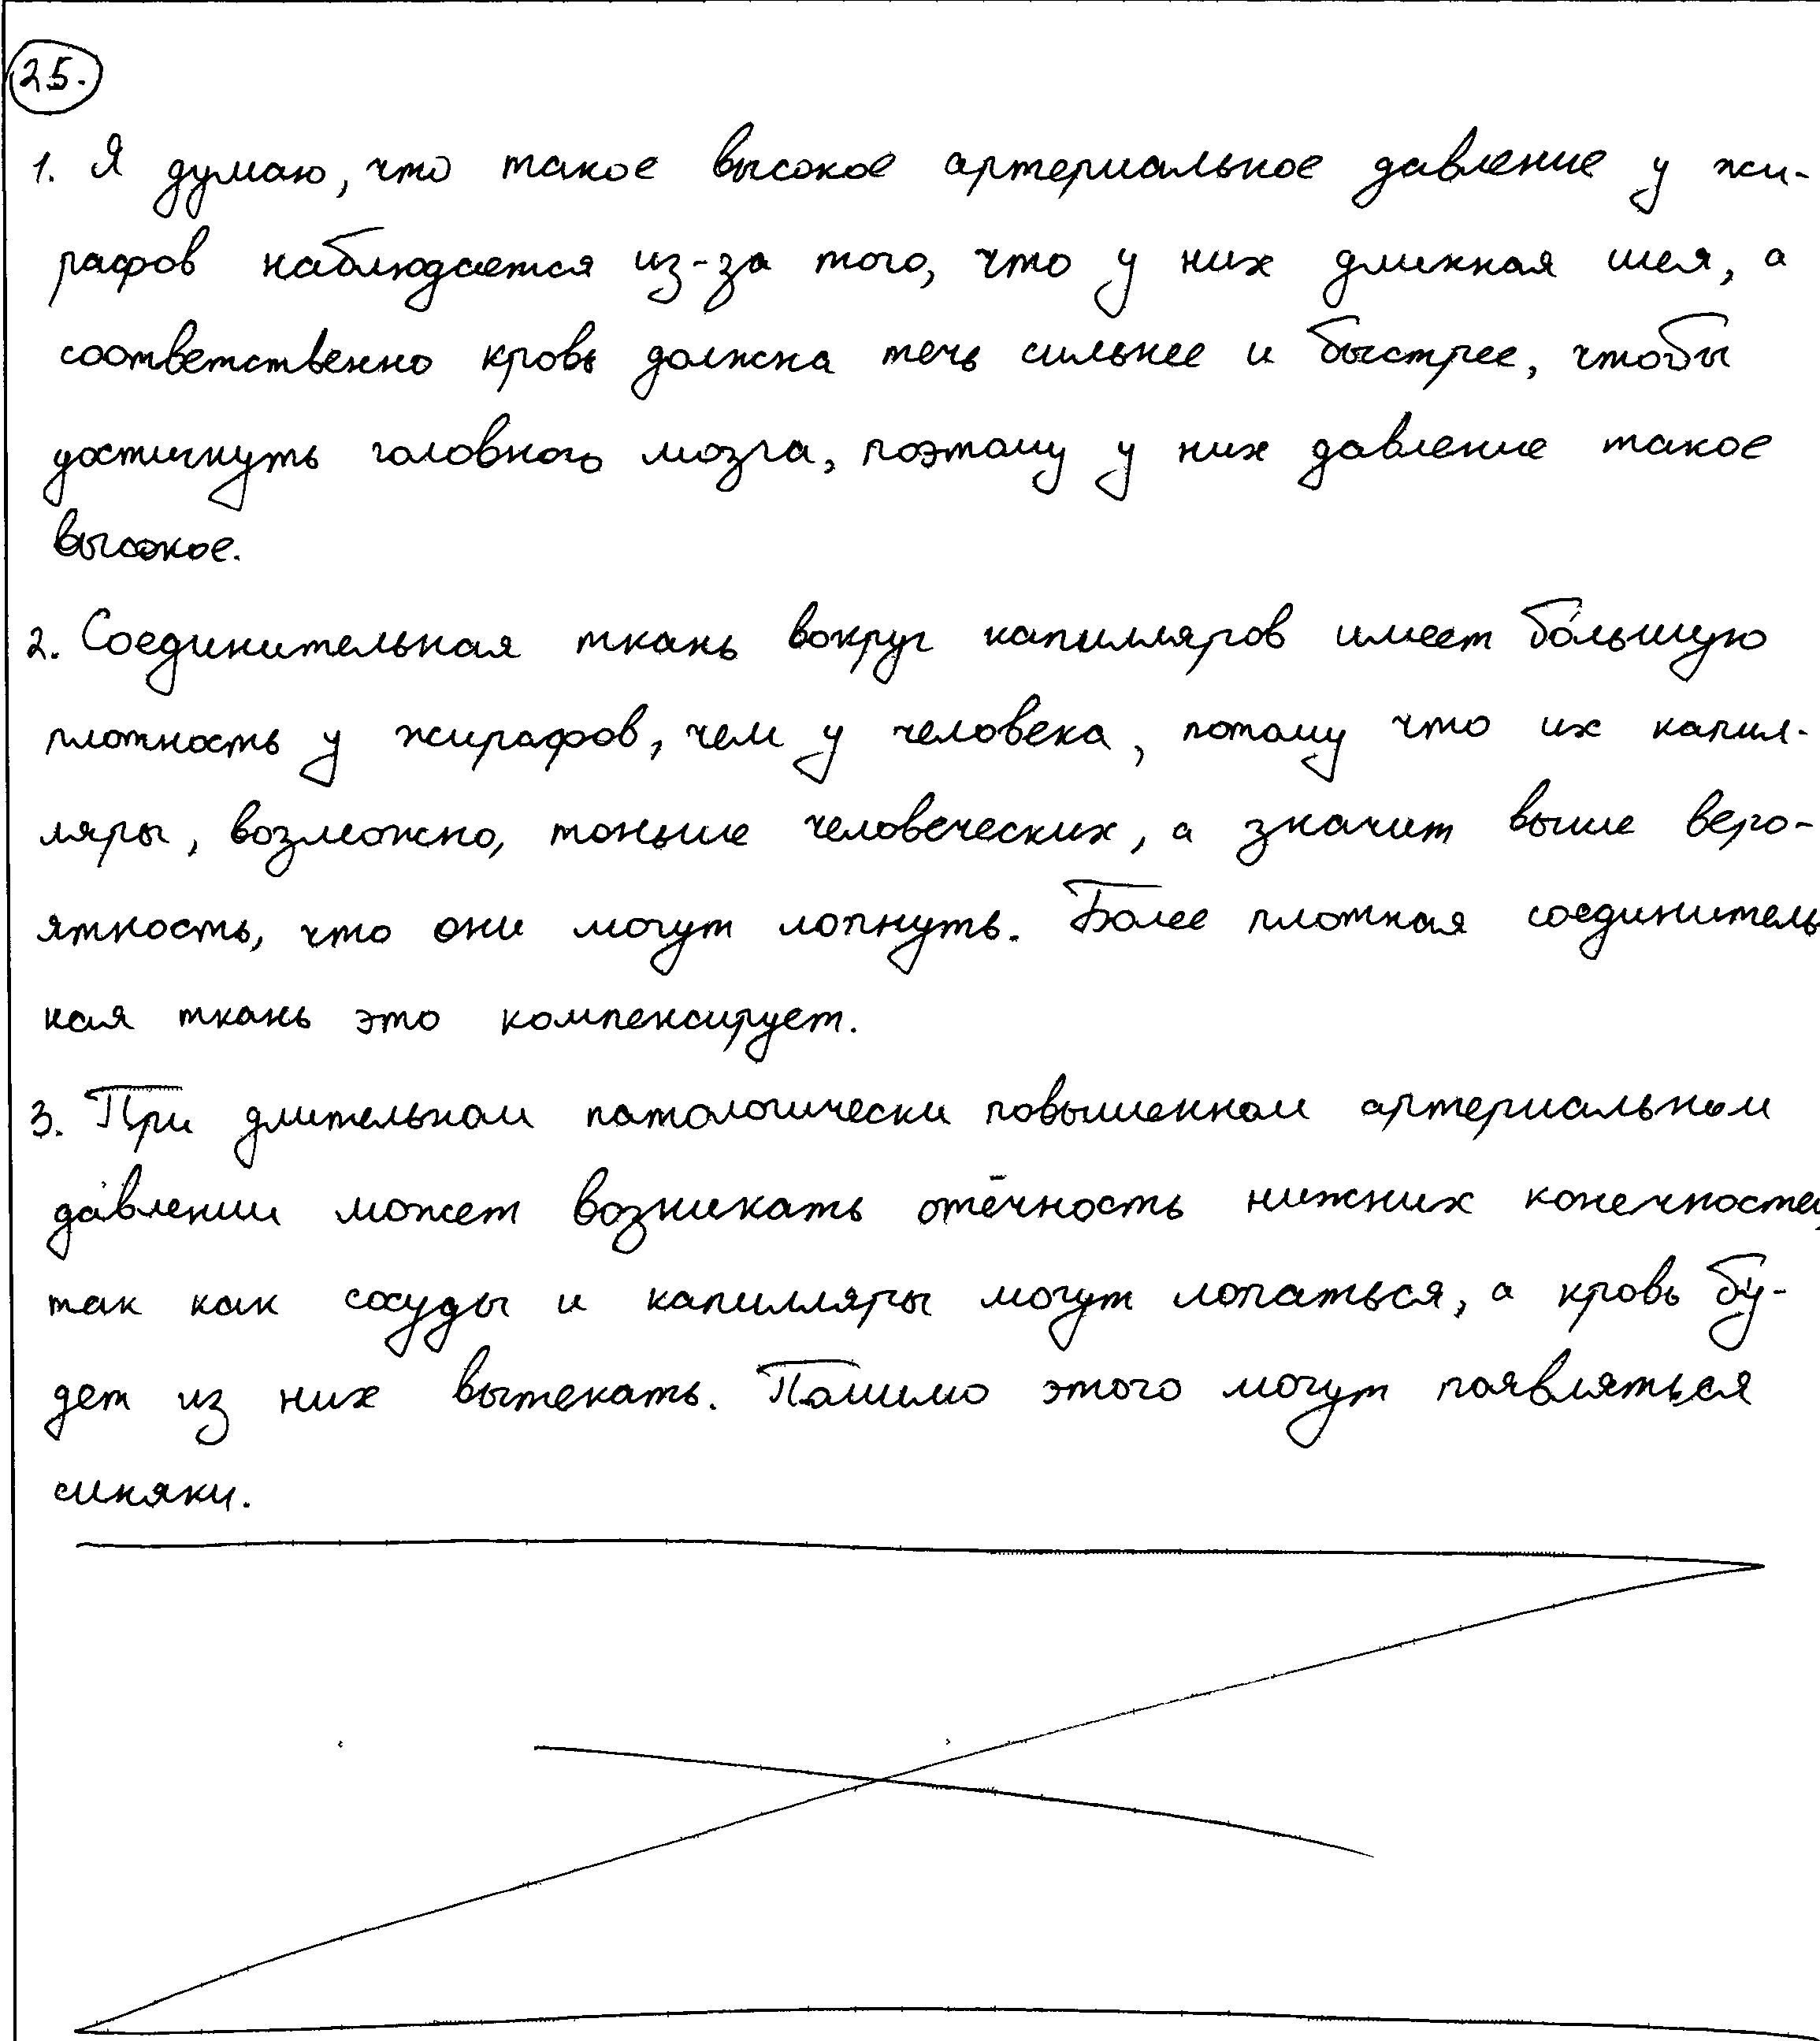 25.
1. Я думаю, что такое высокое артериальное давление у жи-
рафов наблюдается из-за того, что у них длинная шея, а
соответственно кровь должна течь сильнее и быстрее, чтобы
достигнуть головного мозга, поэтому у них давление такое
высокое.
2. Соединительная ткань вокруг капилляров имеет бо́льшую
плотность у жирафов, чем у человека, потому что их капил-
ляры, возможно, тоньше человеческих, а значит выше веро-
ятность, что они могут лопнуть. Более плотная соединитель
ная ткань это компенсирует.
3. При длительном патологически повышенном артериальном
давлении может возникать отёчность нижних конечностей,
так как сосуды и капилляры могут лопаться, а кровь бу-
дет из них вытекать. Помимо этого могут появляться
синяки.